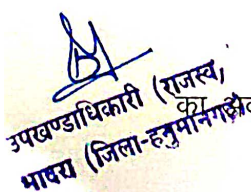 उपखण्डाधिकारी (राजस्व)
भादरा (जिला-हनुमानगढ़)
का